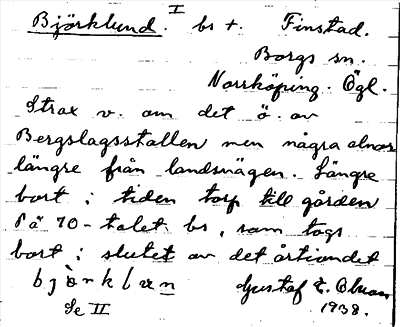 Björklund. I bs +. Finstad.
Borgs sn.
Norrköping. Ögl.
Strax v. om det ö. av
Bergslagsstallen men några alnar
längre från landsvägen. Längre
bort i tiden torp till gården
På 70-talet bs, som togs
bort i slutet av det årtiondet
björklun Gustaf E. Olsson
Se II 1938.